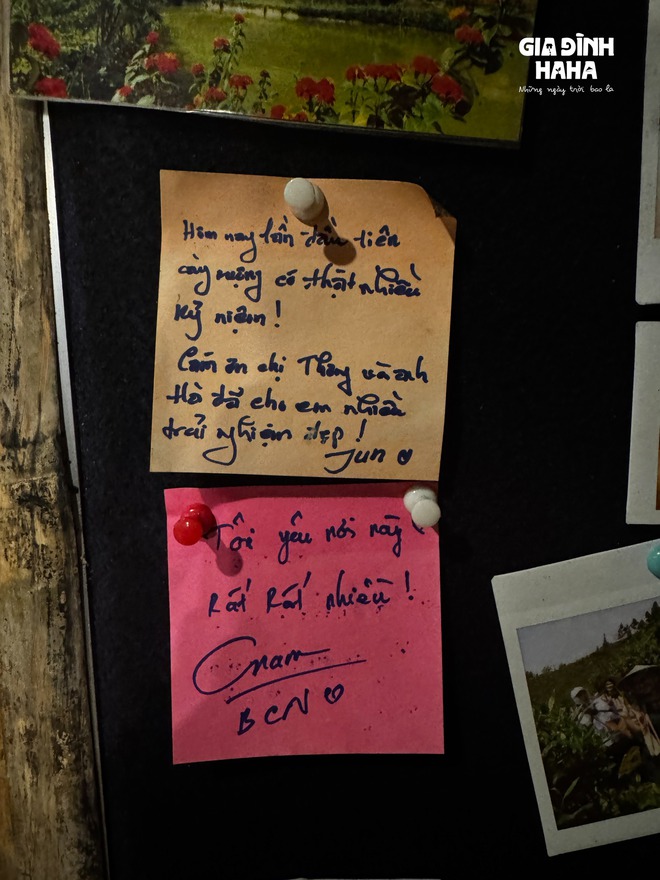 GIA ĐÌNH
HAHA
Những ngày trời bao la
Hôm nay lần đầu tiên
có thật nhiều
kỷ niệm!
Cảm ơn chị Thông và anh
Hò đã cho em nhiều
trải nghiệm đẹp!
Jun
Tôi yêu nơi này
Rất Rất nhiều!
BCN